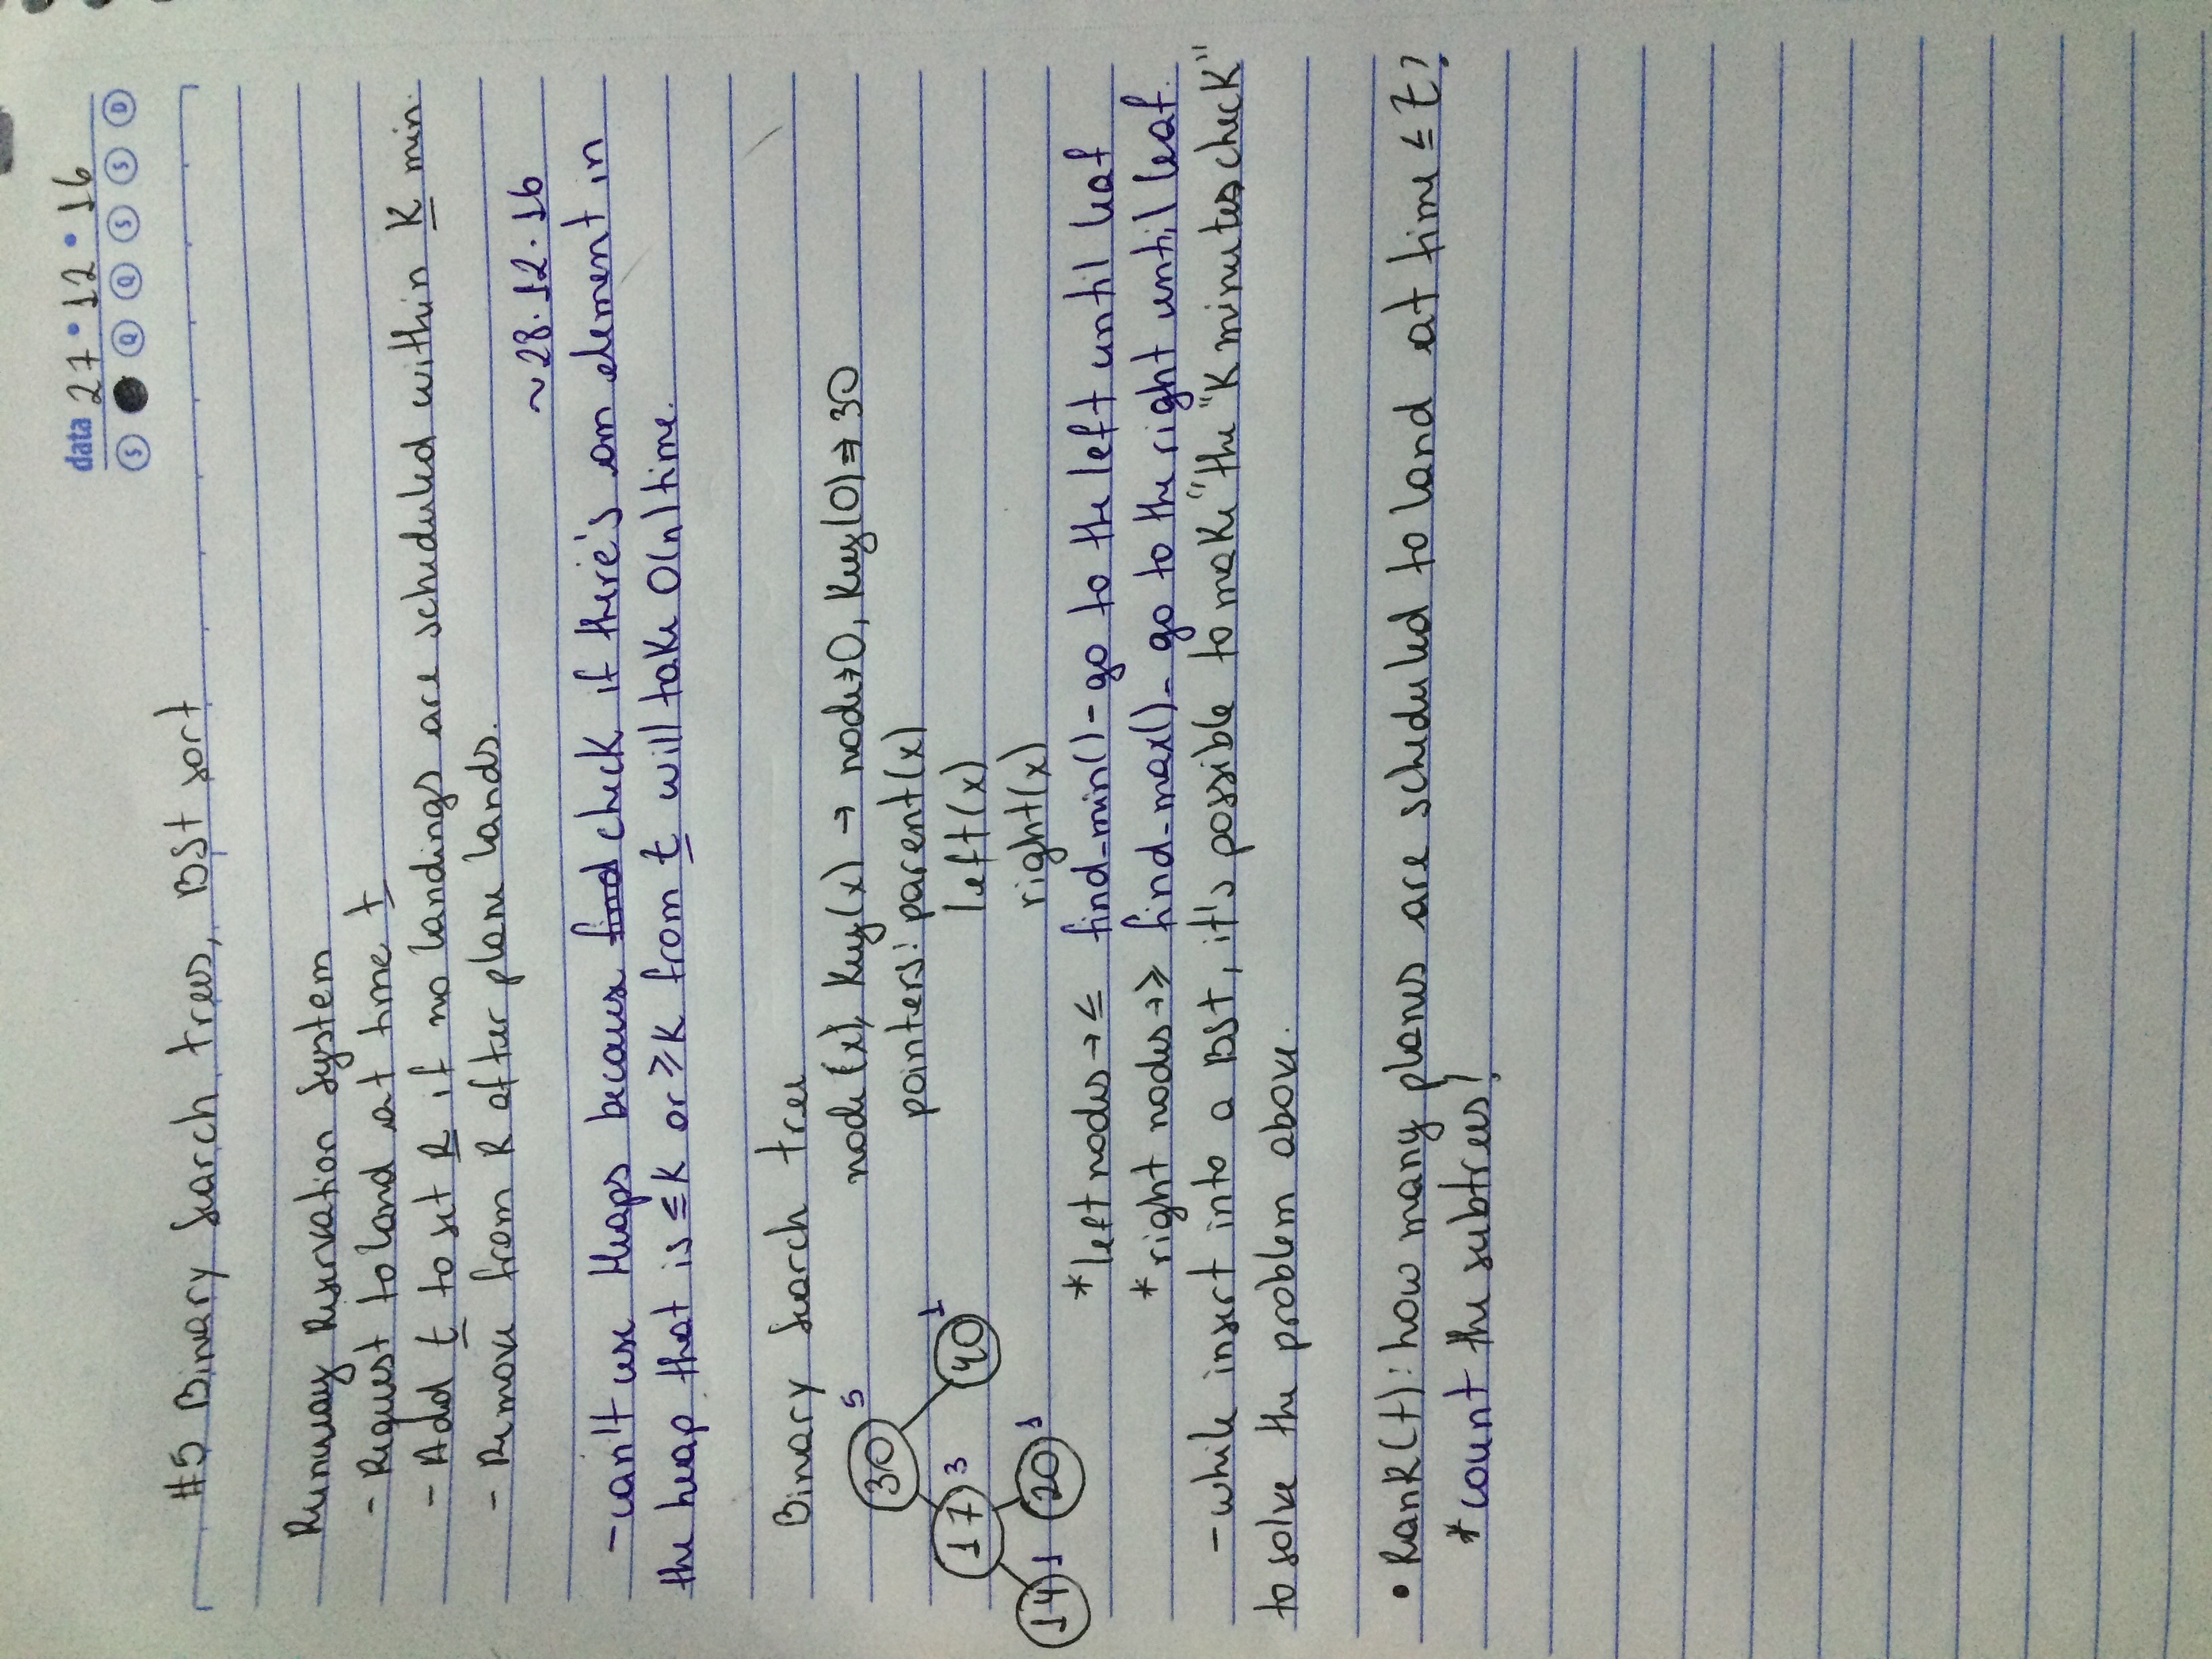 data 27 • 12 • 16
S Q Q S S D
#5 Binary Search trees, BST sort
Runway Reservation System
- Request to land at time t
- Add t to set R if no landings are scheduled within K min.
- Remove from R after plane lands.
~28.12.16
- can't use Heaps because find check if there's an element in
the heap that is ≤K or ≥K from t will take O(n) time.
Binary Search tree
node (x), Key(x) → node→0, Key(0)⇒30
30 5
pointers: parent(x)
17 3 40 1
left(x)
14 1 20 1
right(x)
*left nodes → ≤ find_min() - go to the left until leaf
*right nodes → ≥ find_max() - go to the right until leaf.
- while insert into a BST, it's possible to make "the "K minutes check"
to solve the problem above.
• Rank(t): how many planes are scheduled to land at time ≤ t?
*count the subtrees!